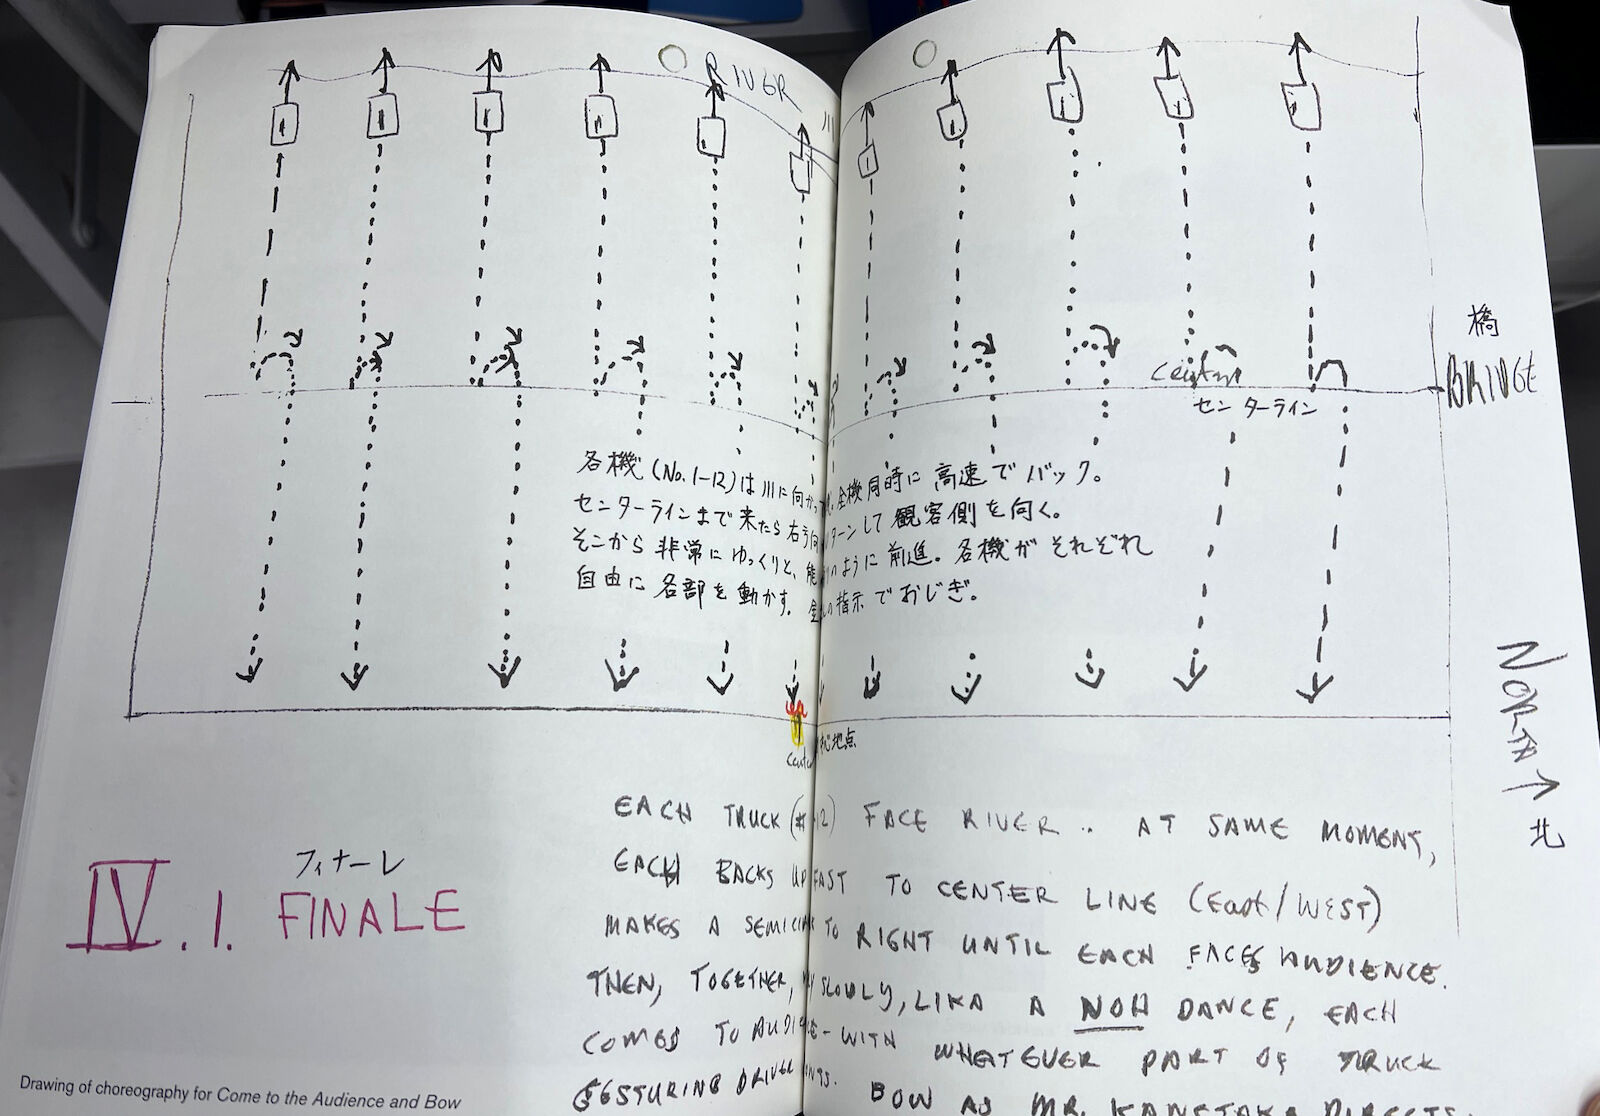 RIVER
川
橋
BRINGE
Center
センターライン
各機(No.1-12)は川に向かって 全機同時に高速でバック。
センターラインまで来たら右方向 ターンして観客側を向く。
そこから非常にゆっくりと、能 のように前進。各機がそれぞれ
自由に各部を動かす。 の指示でおじぎ。
地点
NORTH ↑
北
EACH TRUCK (# 12) FACE RIVER .. AT SAME MOMENT,
EACH BACKS UP FAST TO CENTER LINE (East/WEST)
MAKES A TO RIGHT UNTIL EACH FACES AUDIENCE.
THEN, TOGETHER, SLOWLY, LIKA A NOH DANCE, EACH
COMES TO - WITH WHATEVER PART OF TRUCK
GESTURING DRIVER
BOW AS MR. KANETAKA DIRECTS
フィナーレ
IV.1. FINALE
Drawing of choreography for Come to the Audience and Bow